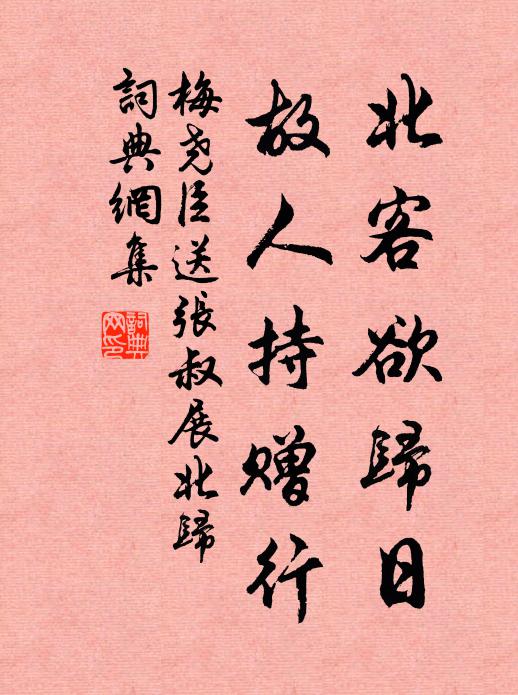 北客欲歸日
故人持贈行
梅堯臣送張叔展北歸
詞典網集
詞典網印